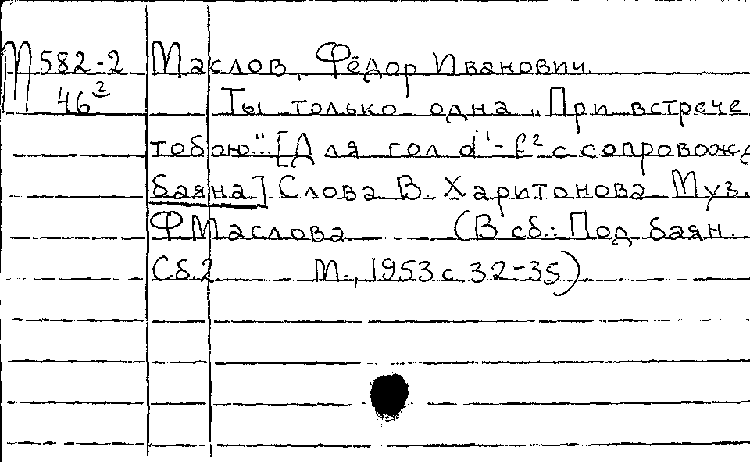 М 582-2 Маслов, Фёдор Иванович.
46² Ты только одна „При встрече
тобою" [Для гол d¹-f² с сопровожд
баяна] Слова В. Харитонова Муз.
Ф Маслова (В сб.: Под баян.
Сб. 2 М., 1953 с 32-35)